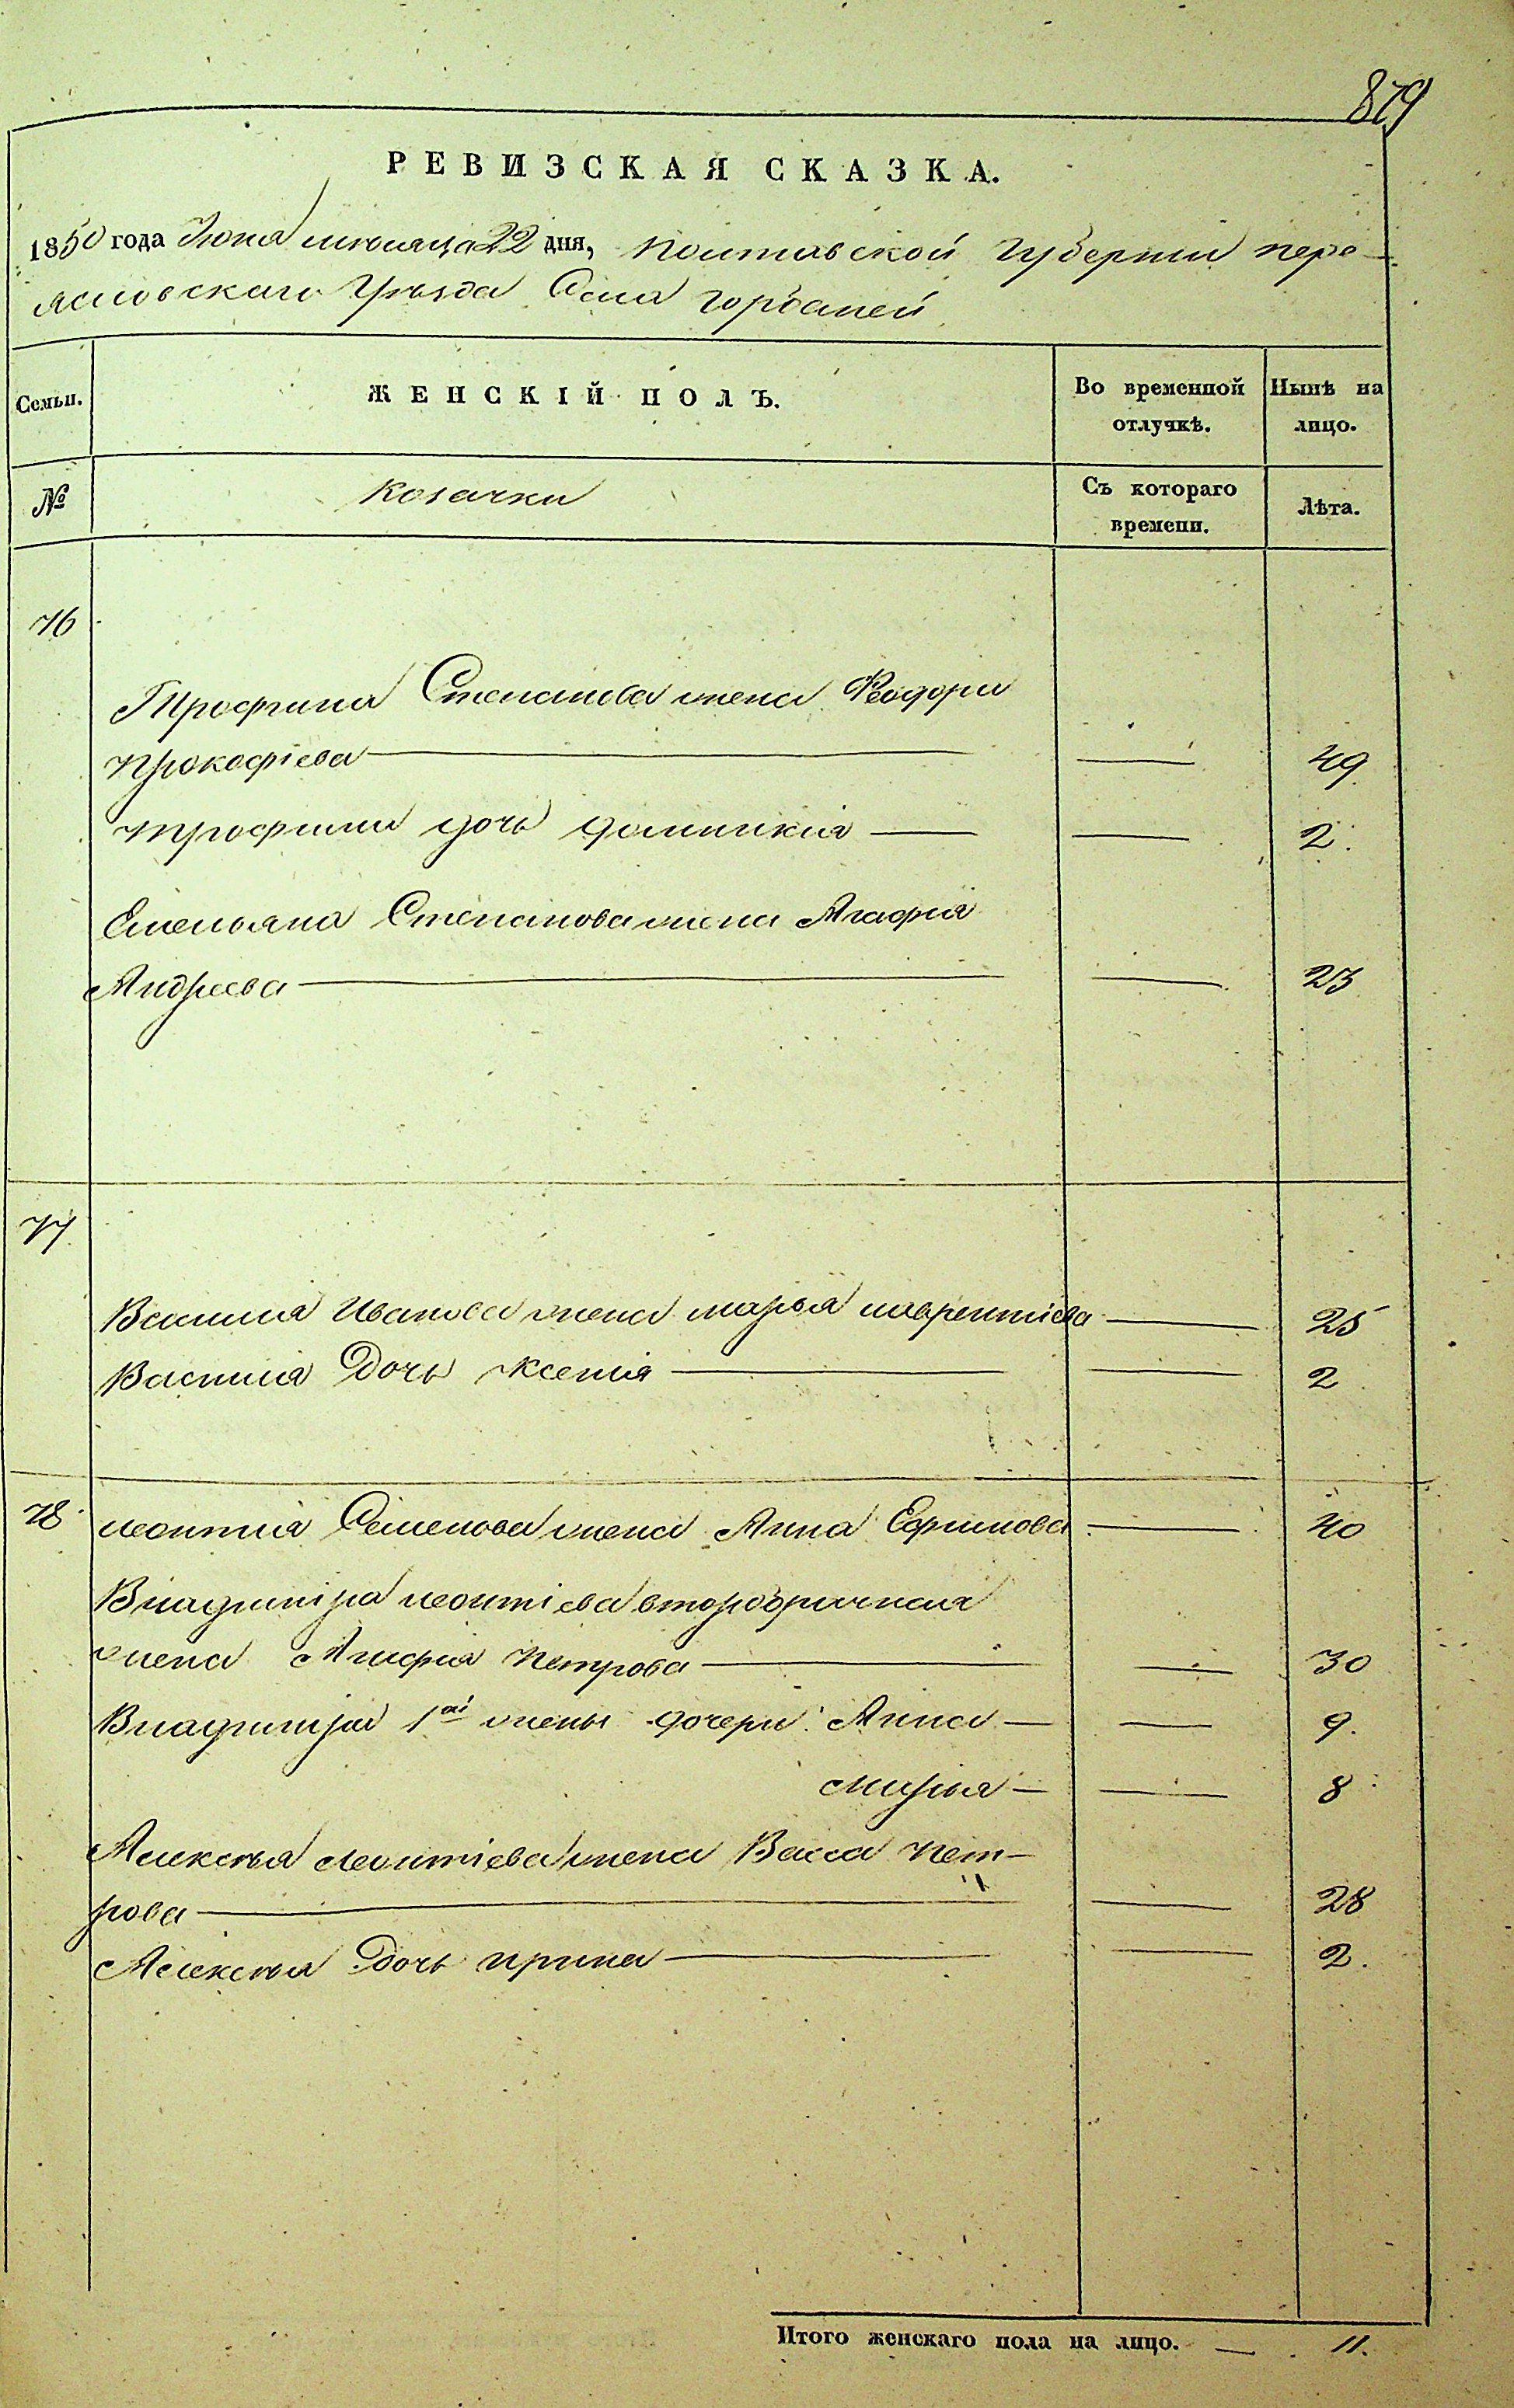 879
РЕВИЗСКАЯ СКАЗКА.
1850 года Июня месяца 22 дня, Полтавской Губернии пере-
яславскаго Уѣзда Села Горбаней
Семьи.
ЖЕНСКІЙ ПОЛЪ.
Во временной отлучкѣ.
Нынѣ на лицо.
№
Козачки
Съ котораго времени.
Лѣта.
76
Трофима Степанова жена Феодора
Прокофіева — — 49
Трофима дочь Домникія — — 2.
Емельяна Степанова жена Агафія
Андреева — — 23
77
Василія Иванова жена марья лаврентіева — 25
Василія Дочь Ксенія — — 2
78 леонтія Семенова жена Анна Ефимова — 40
Владиміра леонтіева второбрачная
жена Агафія Петрова — — 30
Владиміра 1ой жены дочери: Анна — — 9.
Марья — — 8
Алексѣя Леонтіева жена Васса Пет-
рова — — 28
Алексѣя Дочь ирина — — 2.
Итого женскаго пола на лицо. — 11.